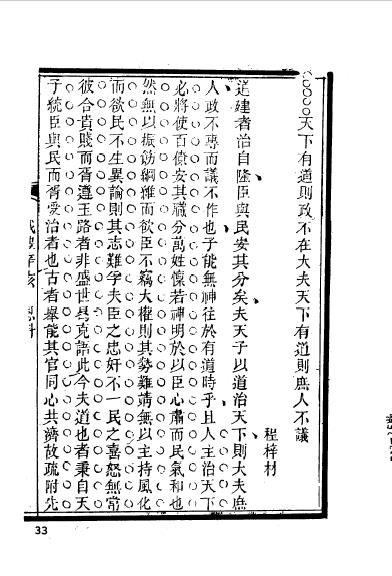 天下有道則政不在大夫天下有道則庶人不議
程梓材
道建者治自隆臣與民安其分矣夫天子以道治天下則大夫庶
人政不專而議不作也子能無神往於有道時乎且人主治天下
必將使百僚安其職分萬姓懍若神明於以臣心肅而民氣和也
然無以振筋綱維而欲臣不竊大權則其勢難靖無以主持風化
而欲民不生異論則其志難孚夫臣之忠奸不一民之喜怒無常
彼合貴賤而胥遵王路者非盛世曷克語此今夫道也者秉自天
子統臣與民而胥受治者也古者舉能其官同心共濟故疏附先
33